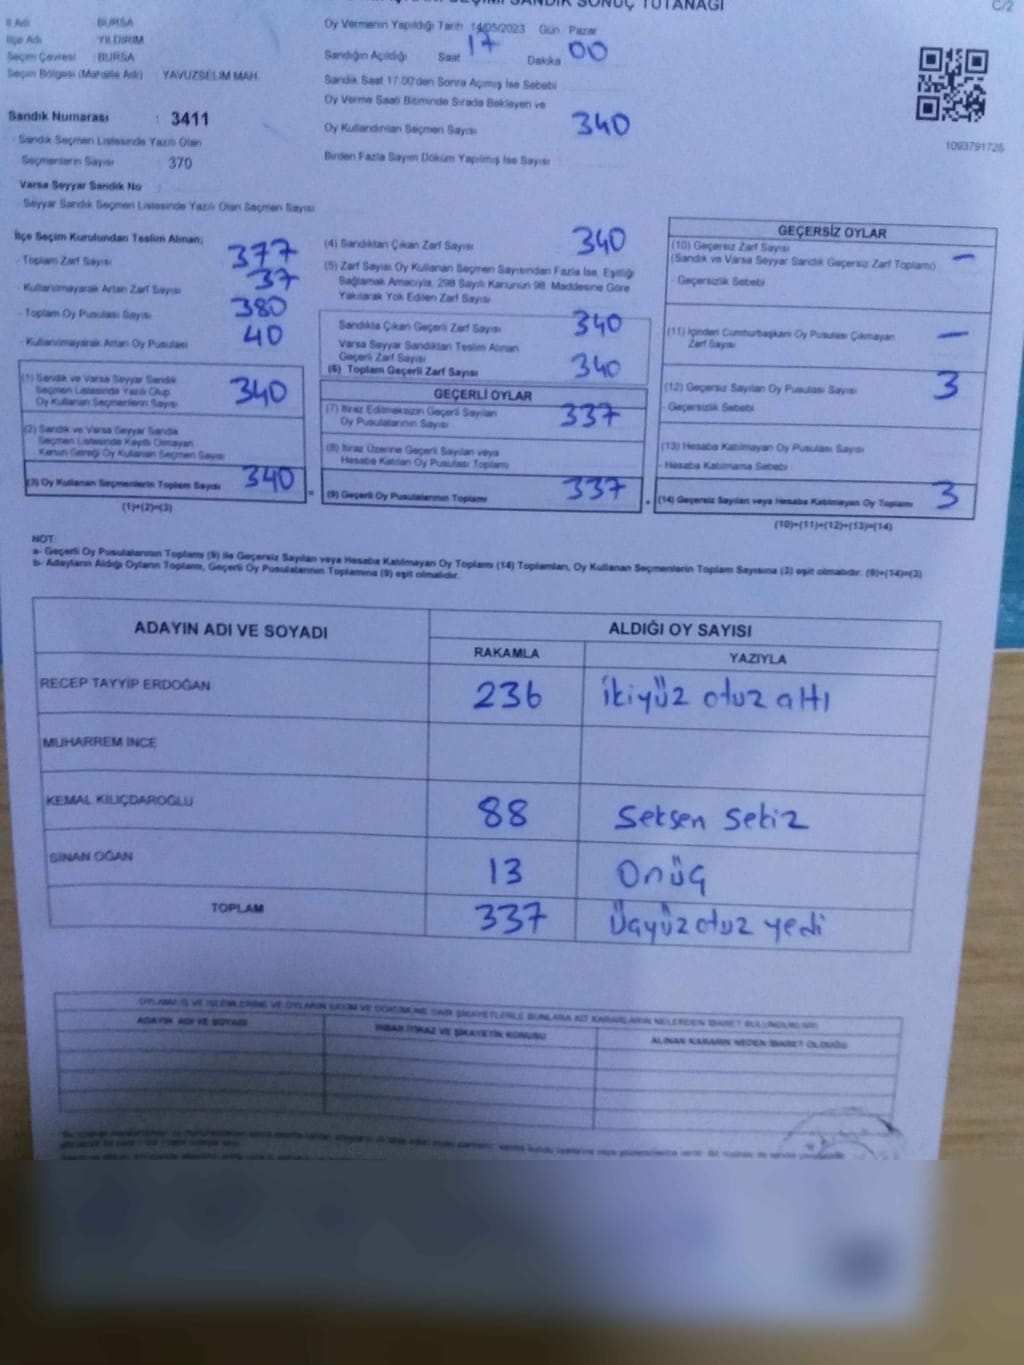 SANDIK SONUÇ TUTANAĞI
C/2
İl Adı : BURSA
İlçe Adı : YILDIRIM
Seçim Çevresi : BURSA
Seçim Bölgesi (Mahalle Adı) : YAVUZSELİM MAH.
Sandık Numarası : 3411
- Sandık Seçmen Listesinde Yazılı Olan
Seçmenlerin Sayısı : 370
Varsa Seyyar Sandık No :
- Seyyar Sandık Seçmen Listesinde Yazılı Olan Seçmen Sayısı:
Oy Vermenin Yapıldığı Tarih 14/05/2023 Gün Pazar
Sandığın Açıldığı Saat 17 Dakika 00
Sandık Saat 17.00'den Sonra Açmış İse Sebebi
Oy Verme Saati Bitiminde Sırada Bekleyen ve
Oy Kullandırılan Seçmen Sayısı 340
Birden Fazla Sayım Döküm Yapılmış İse Sayısı
1093791725
İlçe Seçim Kurulundan Teslim Alınan;
- Toplam Zarf Sayısı 377
- Kullanılmayarak Artan Zarf Sayısı 37
- Toplam Oy Pusulası Sayısı 380
- Kullanılmayarak Artan Oy Pusulası 40
(1) Sandık ve Varsa Seyyar Sandık
Seçmen Listesinde Yazılı Olup
Oy Kullanan Seçmenlerin Sayısı 340
(2) Sandık ve Varsa Seyyar Sandık
Seçmen Listesinde Kayıtlı Olmayan
Kanun Gereği Oy Kullanan Seçmen Sayısı
(3) Oy Kullanan Seçmenlerin Toplam Sayısı 340
(1)+(2)=(3)
(4) Sandıktan Çıkan Zarf Sayısı 340
(5) Zarf Sayısı Oy Kullanan Seçmen Sayısından Fazla İse, Eşitliği
Sağlamak Amacıyla, 298 Sayılı Kanunun 98. Maddesine Göre
Yakılarak Yok Edilen Zarf Sayısı
Sandıkta Çıkan Geçerli Zarf Sayısı 340
Varsa Seyyar Sandıktan Teslim Alınan
Geçerli Zarf Sayısı
(6) Toplam Geçerli Zarf Sayısı 340
GEÇERLİ OYLAR
(7) İtiraz Edilmeksizin Geçerli Sayılan
Oy Pusulalarının Sayısı 337
(8) İtiraz Üzerine Geçerli Sayılan veya
Hesaba Katılan Oy Pusulası Toplamı
= (9) Geçerli Oy Pusulalarının Toplamı 337
GEÇERSİZ OYLAR
(10) Geçersiz Zarf Sayısı
(Sandık ve Varsa Seyyar Sandık Geçersiz Zarf Toplamı) —
- Geçersizlik Sebebi
(11) İçinden Cumhurbaşkanı Oy Pusulası Çıkmayan
Zarf Sayısı —
(12) Geçersiz Sayılan Oy Pusulası Sayısı 3
- Geçersizlik Sebebi
(13) Hesaba Katılmayan Oy Pusulası Sayısı
- Hesaba Katılmama Sebebi
+ (14) Geçersiz Sayılan veya Hesaba Katılmayan Oy Toplamı 3
(10)+(11)+(12)+(13)=(14)
NOT:
a- Geçerli Oy Pusulalarının Toplamı (9) ile Geçersiz Sayılan veya Hesaba Katılmayan Oy Toplamı (14) Toplamları, Oy Kullanan Seçmenlerin Toplam Sayısına (3) eşit olmalıdır. (9)+(14)=(3)
b- Adayların Aldığı Oyların Toplamı, Geçerli Oy Pusulalarının Toplamına (9) eşit olmalıdır.
ADAYIN ADI VE SOYADI
ALDIĞI OY SAYISI
RAKAMLA YAZIYLA
RECEP TAYYİP ERDOĞAN 236 ikiyüz otuz altı
MUHARREM İNCE
KEMAL KILIÇDAROĞLU 88 Seksen Sekiz
SİNAN OĞAN 13 Onüç
TOPLAM 337 Üçyüz otuz yedi
ADAYIN ADI VE SOYADI
İHBAR İTİRAZ VE ŞİKAYETİN KONUSU
ALINAN KARARIN NEDEN İBARET OLDUĞU